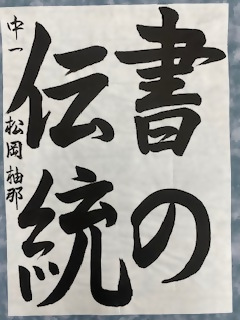 書の
伝統
中一 松岡柚那